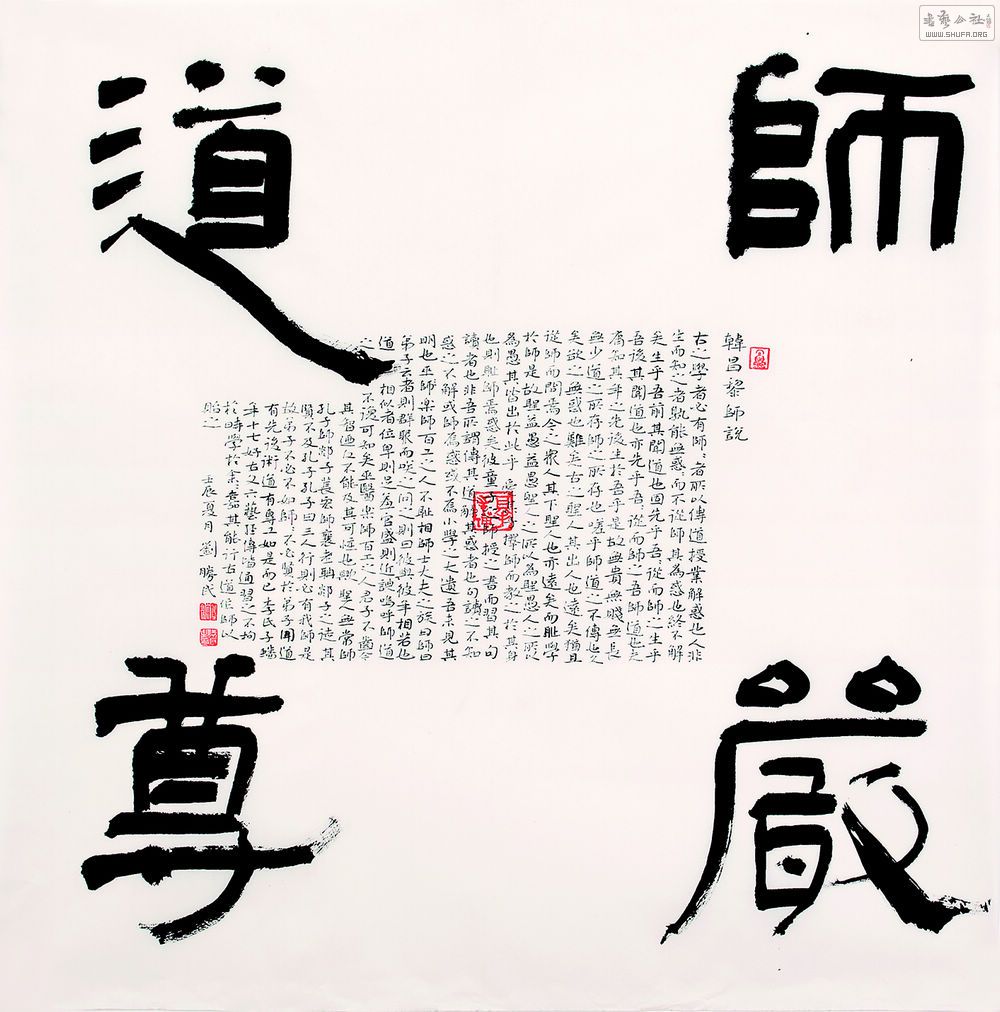 師
嚴
道
尊
韓昌黎師說
古之學者必有師〻者所以傳道授業解惑也人非
生而知之者孰能無惑〻而不從師其為惑也終不解
矣生乎吾前其聞道也固先乎吾〻從而師之生乎
吾後其聞道也亦先乎吾〻從而師之吾師道也夫
庸知其年之先後生於吾乎是故無貴無賤無長
無少道之所存師之所存也嗟乎師道之不傳也久
矣欲人之無惑也難矣古之聖人其出人也遠矣猶且
從師而問焉今之眾人其下聖人也亦遠矣而恥學
於師是故聖益聖愚益愚聖人之所以為聖愚人之所以
為愚其皆出於此乎愛其子擇師而教之於其身
也則恥師焉惑矣彼童子之師授之書而習其句
讀者也非吾所謂傳其道解其惑者也句讀之不知
惑之不解或師焉或不焉小學之大遺吾未見其
明也巫師樂師百工之人不恥相師士大夫之族曰師曰
弟子云者則群聚而笑之問之則曰彼與彼年相若也
道相似者位卑則足羞官盛則近諛嗚呼師道
之不復可知矣巫醫樂師百工之人君子不齒今
其智乃反不能及其可怪也歟聖人無常師
孔子師郯子萇宏師襄老聃郯子之徒其
賢不及孔子孔子曰三人行則必有我師是
故弟子不必不如師〻不必賢於弟子聞道
有先後術道有專工如是而已李氏子蟠
年十七好古文六藝經傳皆通習之不拘
於時學於余嘉其能行古道作師以
貽之
壬辰夏月劉勝民
書藝公社
WWW.SHUFA.ORG